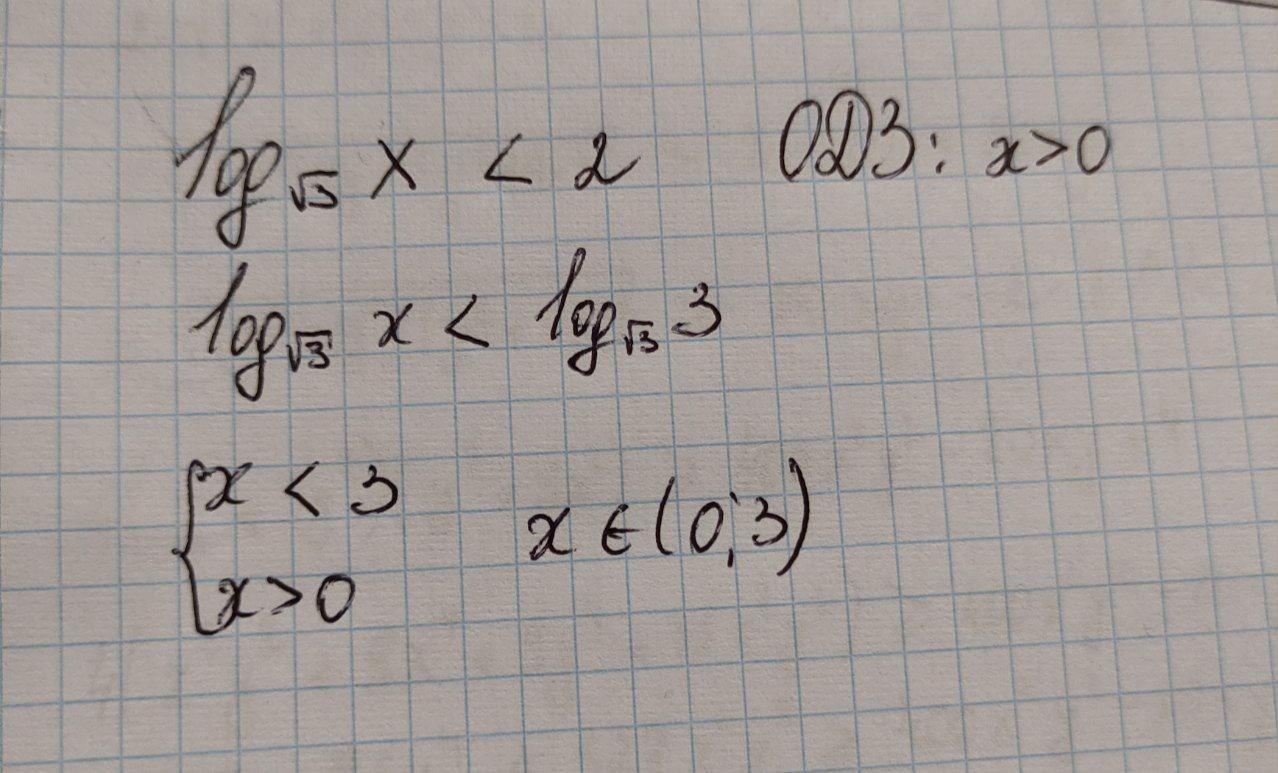 log√3 x < 2 ОДЗ: x>0
log√3 x < log√3 3
{x < 3
x>0 x ∈ (0;3)